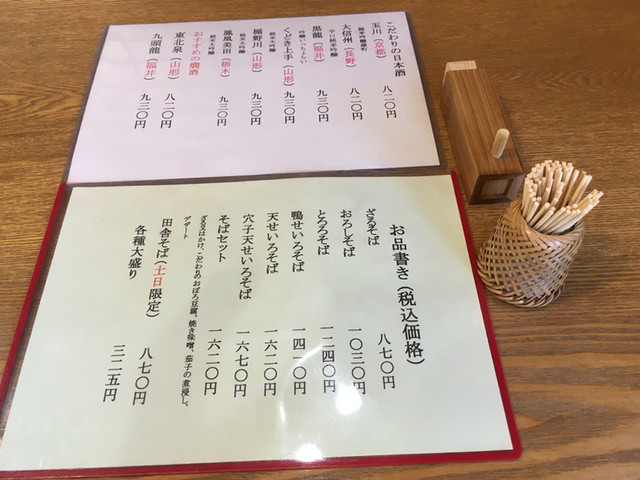 こだわりの日本酒
玉川（京都） 八二〇円
大信州（長野） 八二〇円
辛口純米吟醸
黒龍（福井） 九三〇円
吟醸いっちょらい
くどき上手（山形） 九三〇円
純米大吟醸
楯野川（山形） 九三〇円
純米大吟醸
鳳凰美田（栃木） 九三〇円
純米大吟醸
おすすめの燗酒
東北泉（山形） 八二〇円
九頭龍（福井） 九三〇円
お品書き（税込価格）
ざるそば 八七〇円
おろしそば 一〇三〇円
とろろそば 一二四〇円
鴨せいろそば 一四一〇円
天せいろそば 一六二〇円
穴子天せいろそば 一六七〇円
そばセット 一六二〇円
ざる又はかけ、こだわりのおぼろ豆腐、焼き味噌、茄子の煮浸し、
デザート
田舎そば（土日限定） 八七〇円
各種大盛り 三二五円